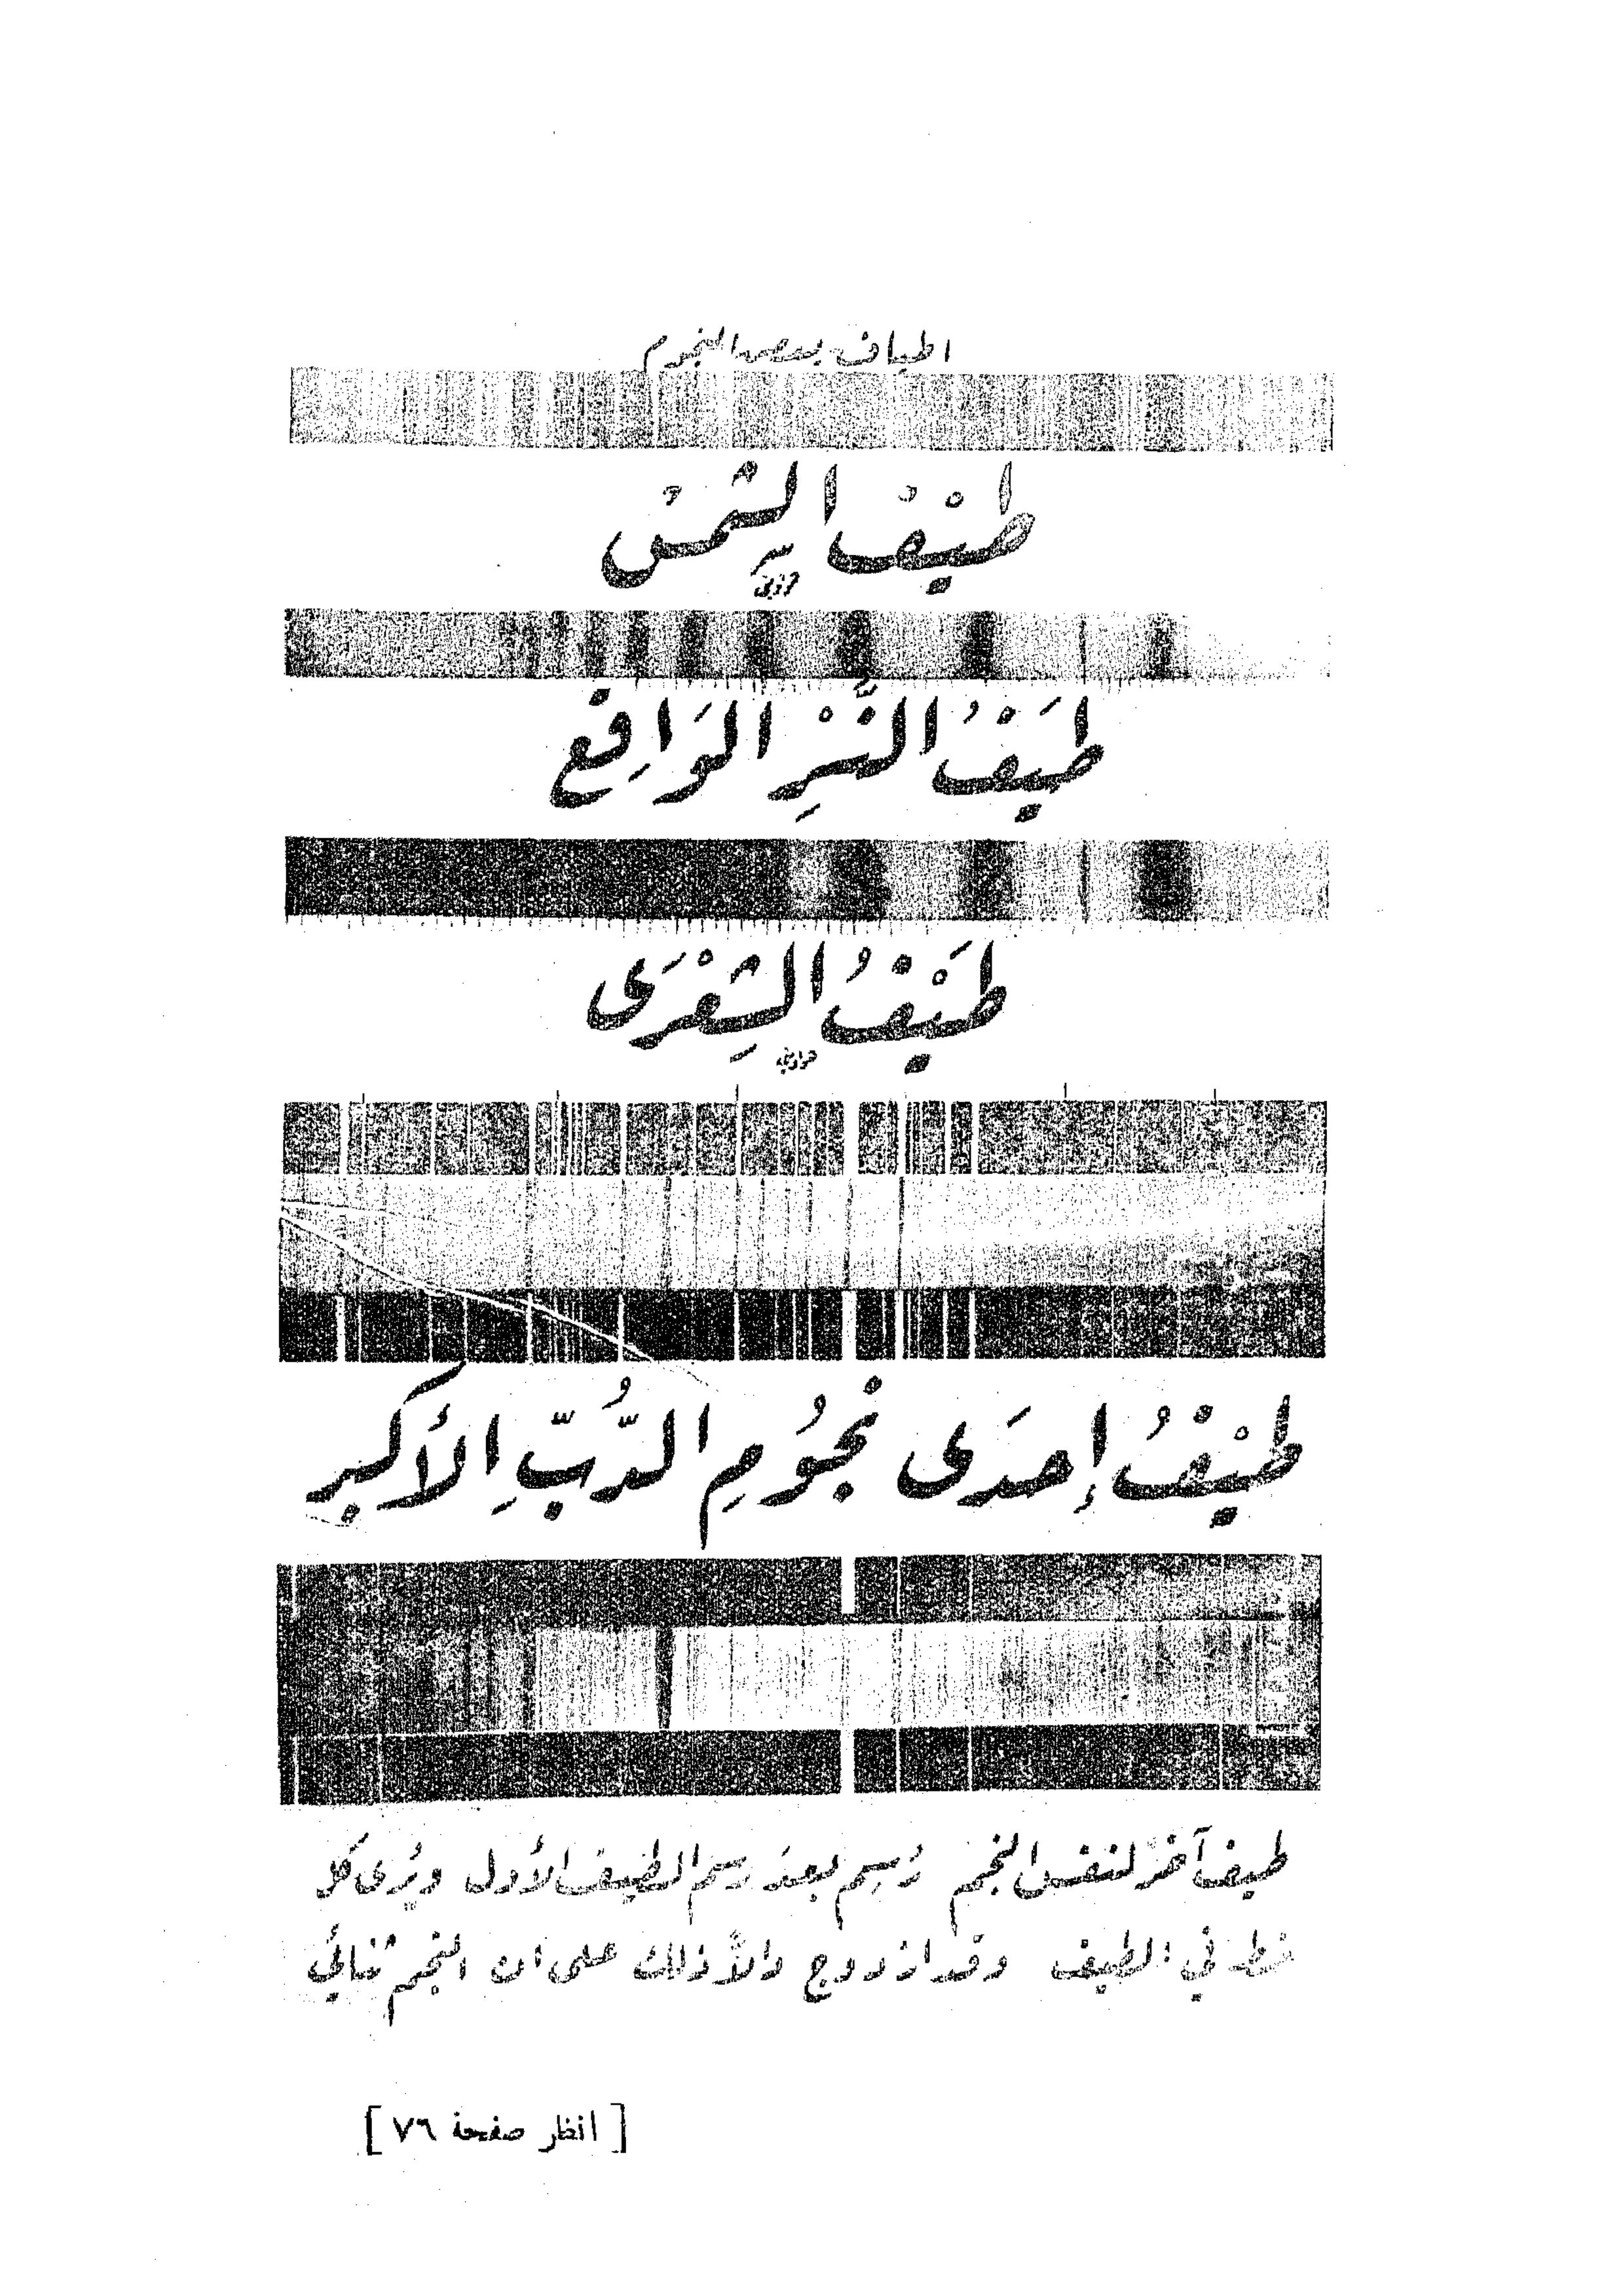 اطياف بعض النجوم
طيْفُ الشِمسْ
طَيفُ النَّسْرِ الوَاقِع
طَيْفُ الشِعْرَى
طيْفُ إحدَى نجُومِ الدُّبِّ الأكبر
طيف آخر لنفس النجم رُسِم بعدَ رسم الطيف الأول ويُرى كل
خط في الطيف وقد ازدوج دالاًّ ذلك على ان النجم ثنائي
[ انظر صفحة ٧٦ ]